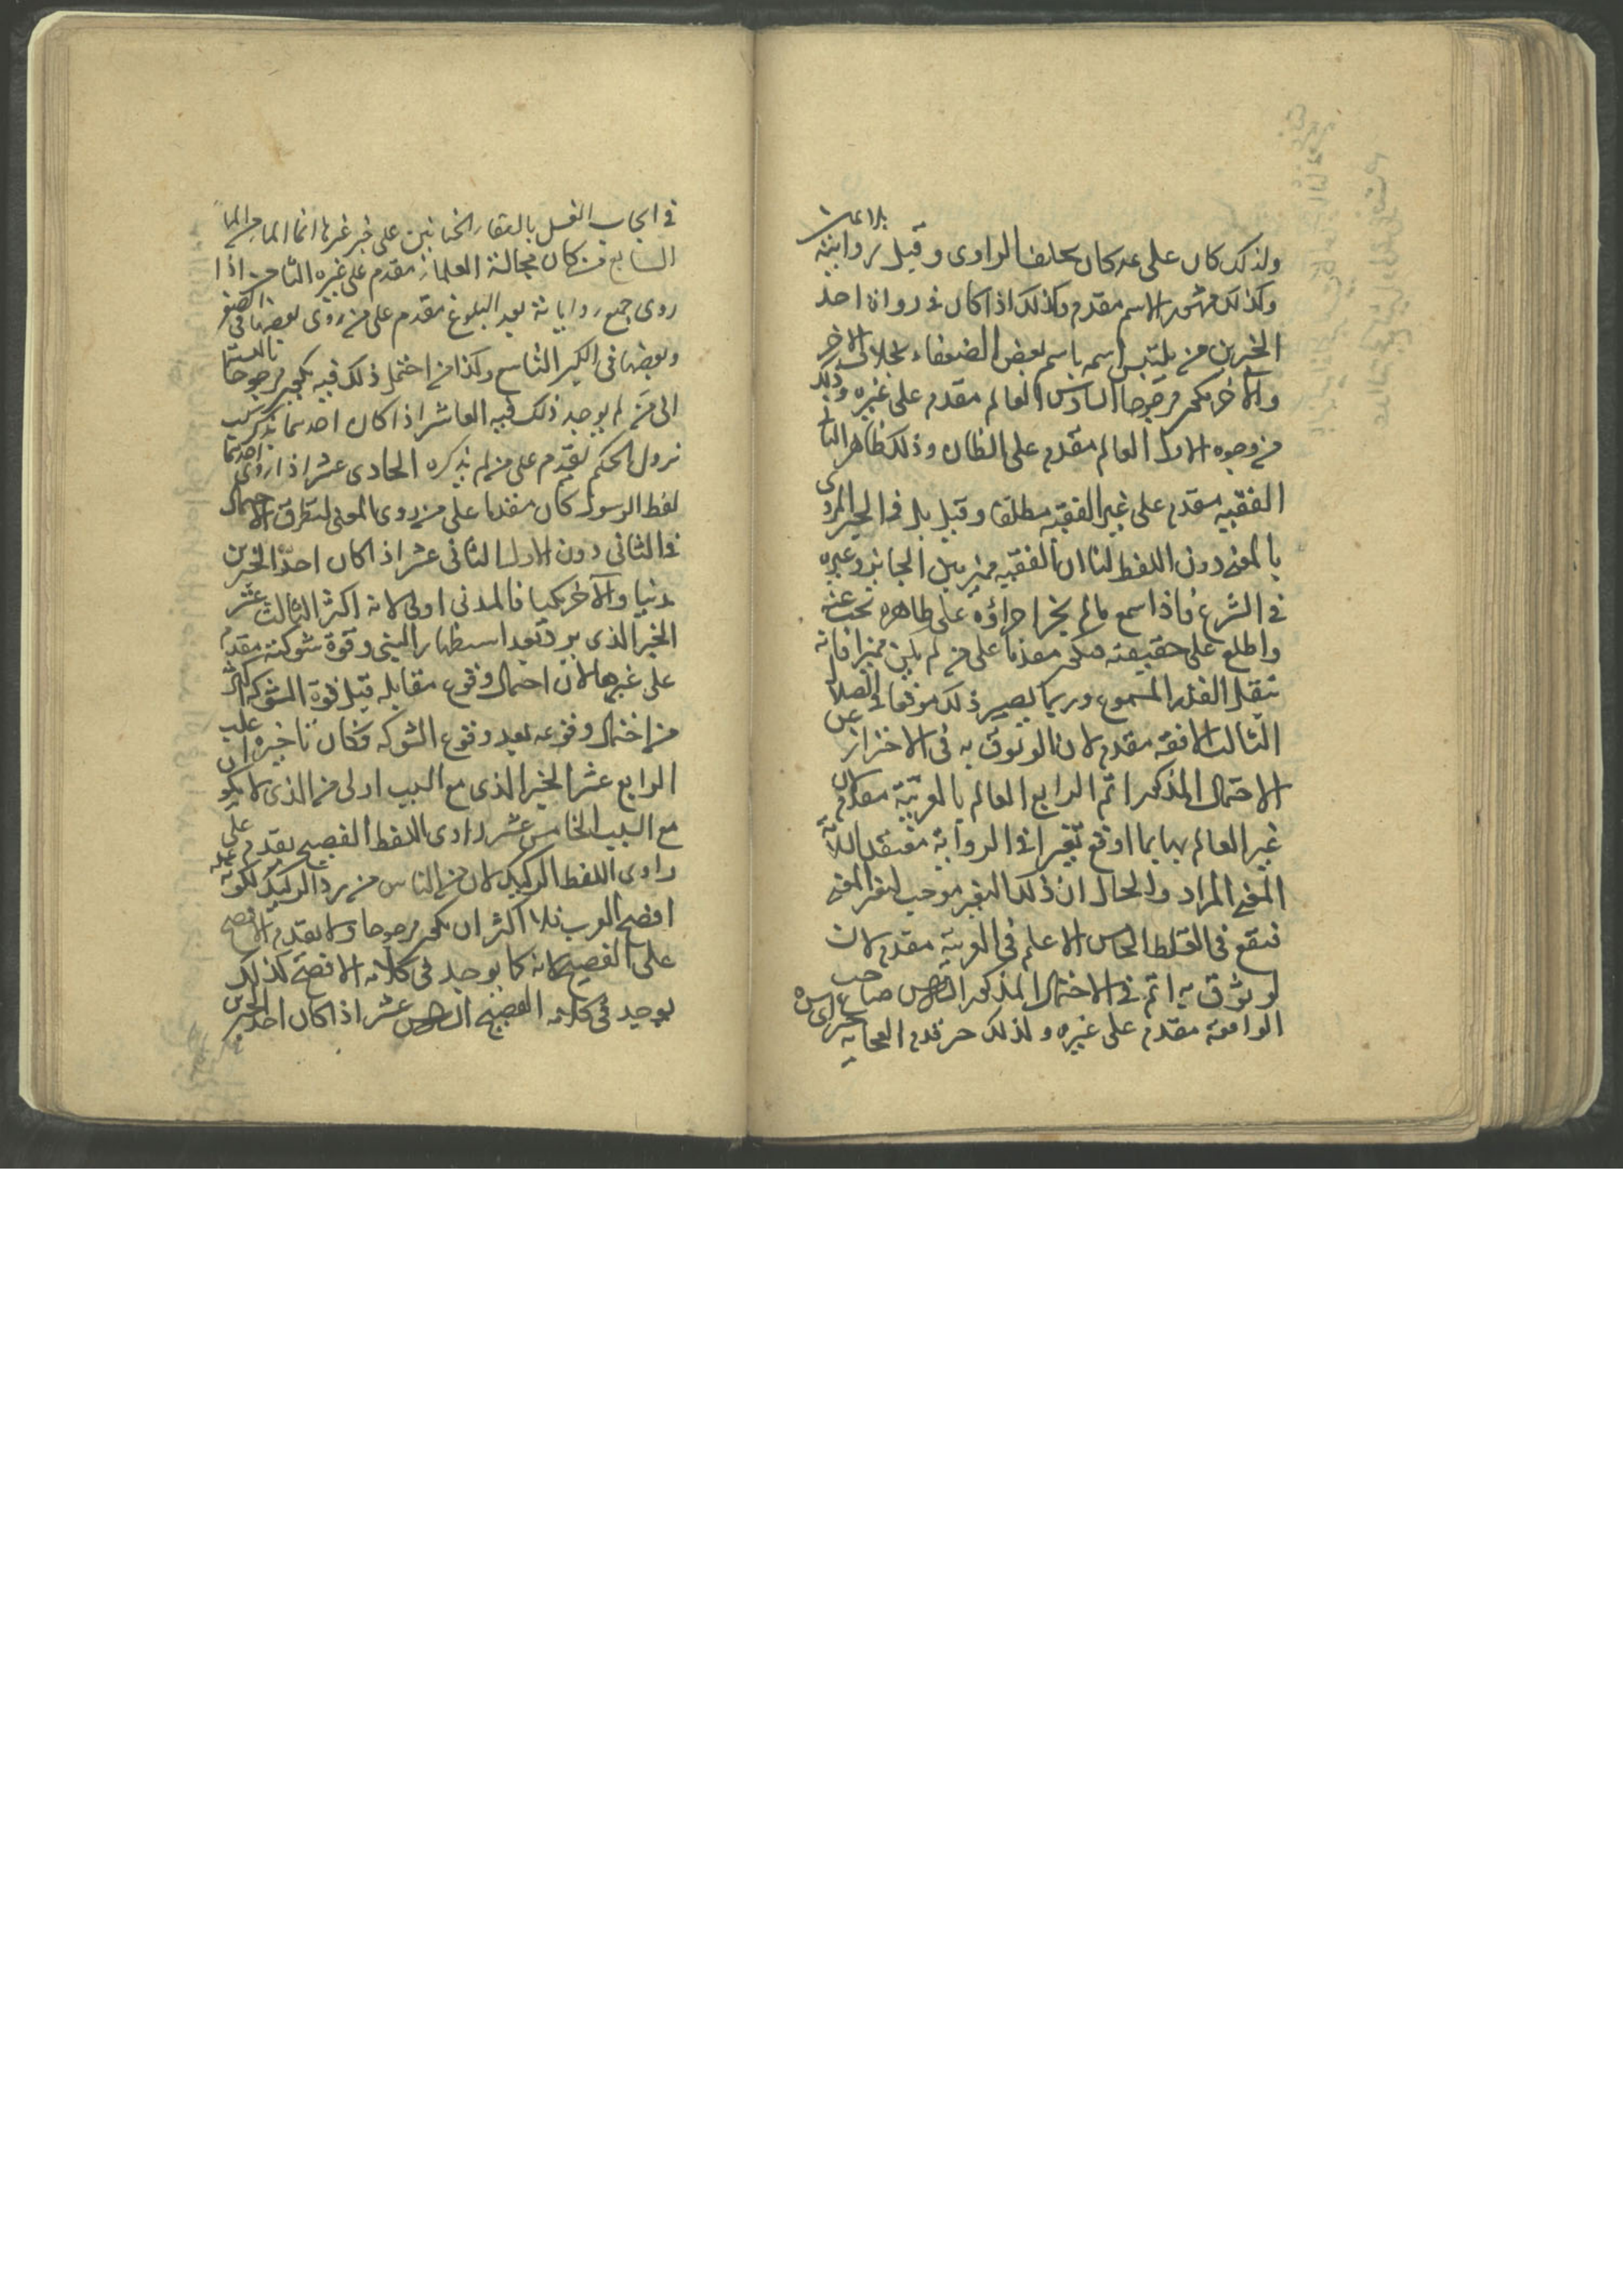 ولذلك كان على عم كان يحلف الراوي وقيل رواية
وكذلك مشهور الاسم مقدم وكذلك اذا كان في رواة احد
الخبرين من يلتبس اسمه باسم بعض الضعفاء بخلاف الاخر
والآخر يكون مرجوحا السادس العالم مقدم على غيره وذلك
من وجوه الاول العالم مقدم على الظان وذلك ظاهر الثاني
الفقيه مقدم على غير الفقيه مطلقا وقيل بل في الخبر المروى
بالمعنى دون اللفظ لنا ان الفقيه مميز بين الجايز وغيره
في الشرع فاذا سمع ما لم يجز اجراؤه على ظاهره بحث عنه
واطلع على حقيقته فيكون مقدما على من لم يكن مميزا فانه
ينقل القدر المسموع وربما يصير ذلك موقعا في الضلال
الثالث الافقه مقدم لان الوثوق به في الاحتراز عن
الاحتمال المذكور اتم الرابع العالم بالعربية مقدم لان
غير العالم بها بما اوقع تغيرا في الرواية معتقدا انه
المعنى المراد والحال ان ذلك التغير موجب لتغير المعنى
فيقع في الغلط الخامس الاعلم في العربية مقدم لان
لوثوق به اتم في الاحتمال المذكور السادس صاحب
الواقعة مقدم على غيره ولذلك الصحابة خبر
في ايجاب الغسل بالتقاء الختانين على خبر غيرها انما الماء من الماء
السابع من كان مجالسة العلماء مقدم على غيره الثامن اذا
روى جميع رواياته بعد البلوغ مقدم على من روى بعضها في الصغر
وبعضها في الكبر التاسع وكذا من احتمل ذلك فيه يكون مرجوحا بالنسبة
الى من لم يوجد ذلك فيه العاشر اذا كان احدهما يذكر سبب
نزول الحكم يقدم على من لم يذكره الحادى عشر اذا روى احدهما
لفظ الرسول كان مقدما على من روى المعنى لتطرق الاحتمال
في الثاني دون الاول الثاني عشر اذا كان احد الخبرين
مدنيا والآخر مكيا فالمدني اولى لانه اكثر الثالث عشر
الخبر الذي يرد بعد استظهار النبي وقوة شوكته مقدم
على غيرها لان احتمال وقوع مقابله قبل قوة الشوكة اكثر
من احتمال وقوعه بعد وقوع الشوكة فكان تأخيره اغلب
الرابع عشر الخبر الذي مع السبب اولى من الذي لا يكون
مع السبب الخامس عشر راوى اللفظ الفصيح يقدم على
راوى اللفظ الركيك لان من الناس من يرد الركيك لكونه عم
افصح العرب فلا اكثر ان يكون مرجوحا ولا يقدم الافصح
على الفصيح لانه كما يوجد في كلامه الافصح كذلك
يوجد في كلامه الفصيح السادس عشر اذا كان احد الخبرين